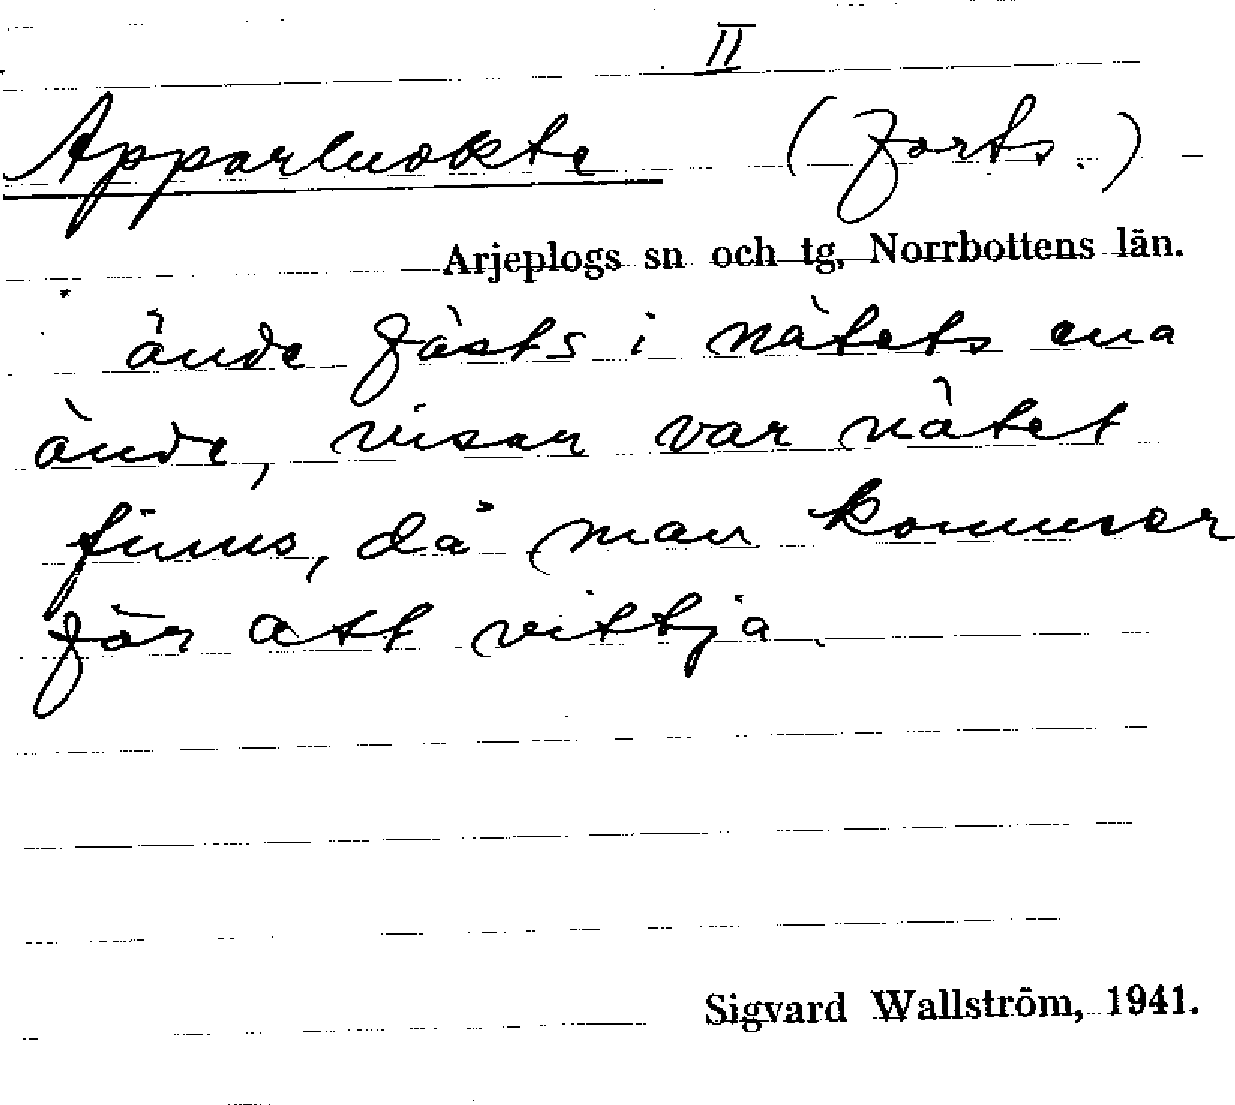 II
Apparluokte (Forts.)
Arjeplogs sn och tg, Norrbottens län.
ände fästs i nätets ena
ände, visar var nätet
finns, då man kommer
för att vittja.
Sigvard Wallström, 1941.